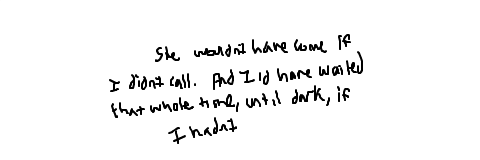 She wouldn't have come if
I didn't call. And I'd have waited
that whole time, until dark, if
I hadn't